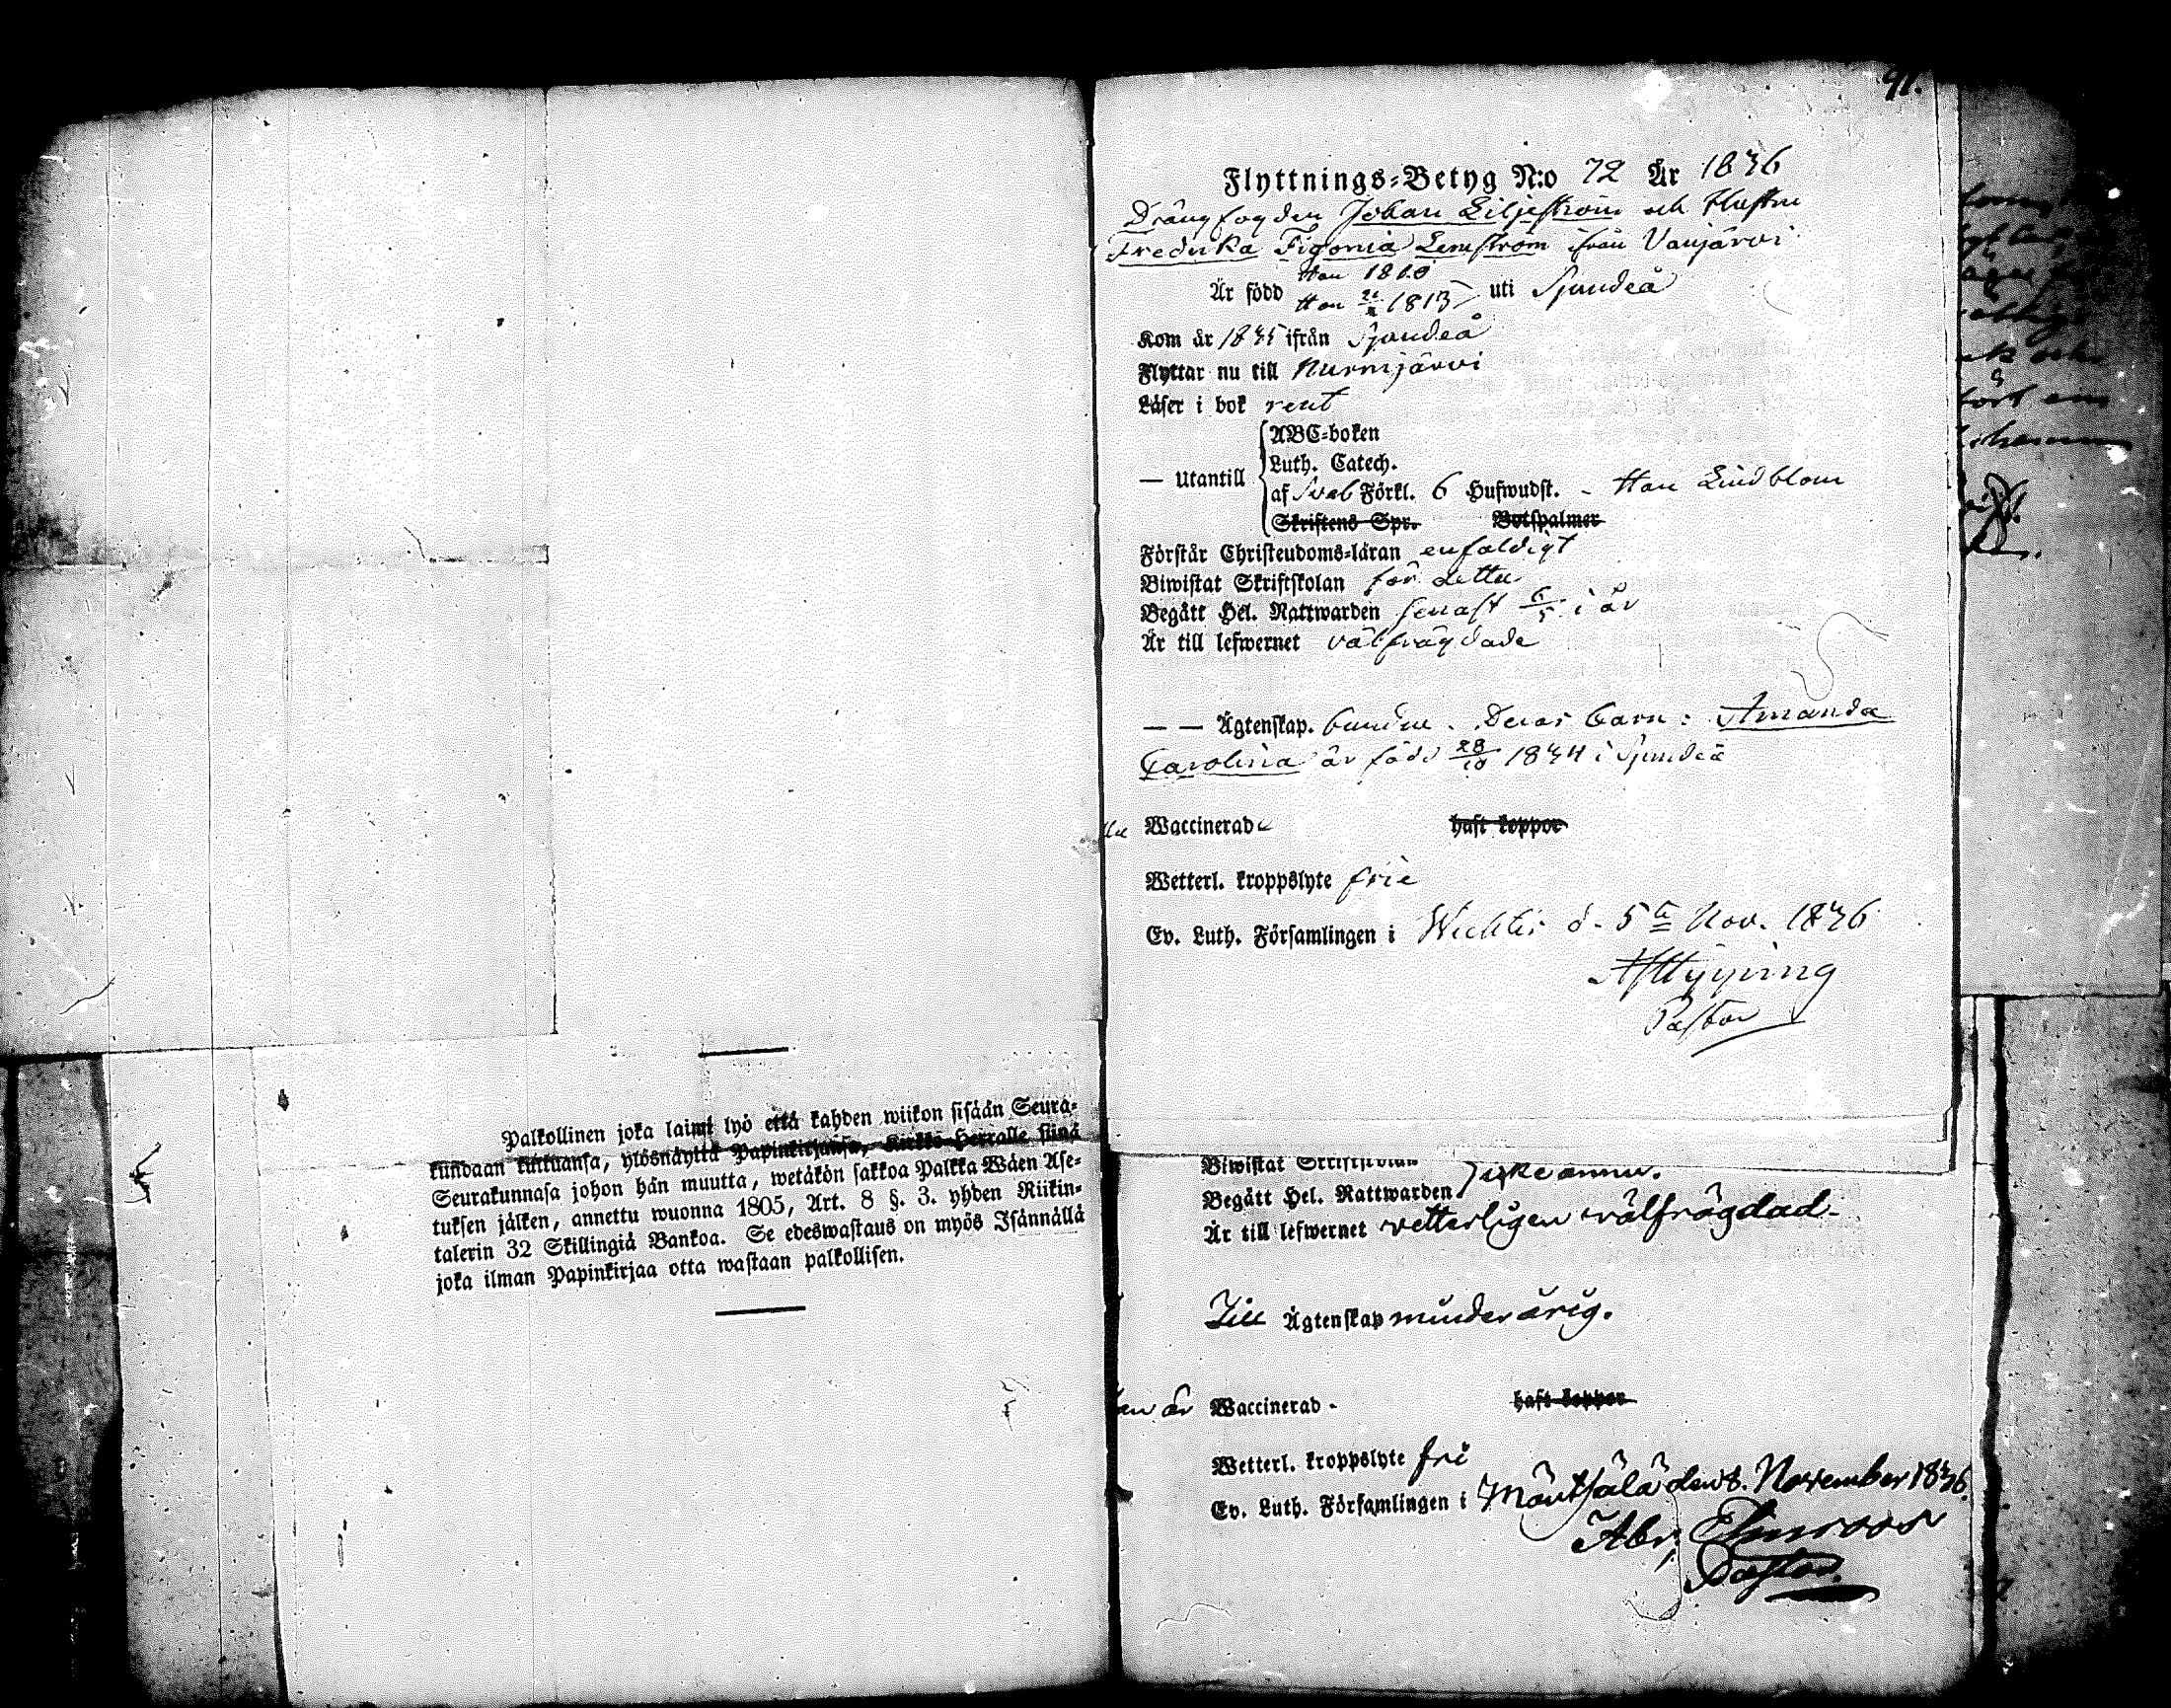 Palkollinen joka laimi lyö että kahden wiikon sisään Seura-
kundaan tultuansa, ylösnäyttä Papinkirjansa, Kirkko-Herralle siinä
Seurakunnasa johon hän muutta, wetäkön sakkoa Palkka Wäen Ase-
tuksen jälken, annettu wuonna 1805, Art. 8 §. 3. yhden Riikin-
talerin 32 Skillingiä Bankoa. Se edeswastaus on myös Isännällä
joka ilman Papinkirjaa otta wastaan palkollisen.
91.
Flyttnings-Betyg N:o 72 År 1836
Drängfogden Johan Liljeström och Hustru
Fredrika Figonia Lemström ifrån Vanjärvi
Han 1810
Är född Hon 1813 uti Sjundeå
Kom år 1835 ifrån Sjundeå
Flyttar nu till Nurmjärvi
Läser i bok rent
ABC-boken
Luth. Catech.
— Utantill
af Sveb Förkl. 6 Hufwudst. - Han Lindblom
Skriftens Spr. Botspalmer
Förstår Christendoms-läran enfaldigt
Biwistat Skriftskolan för detta
Begått Hel. Nattwarden senast 6/5 i år
Är till lefwernet välfrägdade
— — Ägtenskap. bundne. Deras barn: Amanda
Carolina är född 28/10 1834 i Sjundeå
Waccinerade haft koppor
Wetterl. kroppslyte frie
Ev. Luth. Församlingen i Wichtis d. 5te Nov. 1836
Pastor
Biwistat Skriftskolan
Begått Hel. Nattwarden icke ännu.
Är till lefwernet vetterligen välfrägdad-
Till Ägtenskap minderårig.
är Waccinerad - haft koppor
Wetterl. kroppslyte fri
Ev. Luth. Församlingen i Mäntsälä den 8. November 1836.
Abr.
Pastor.